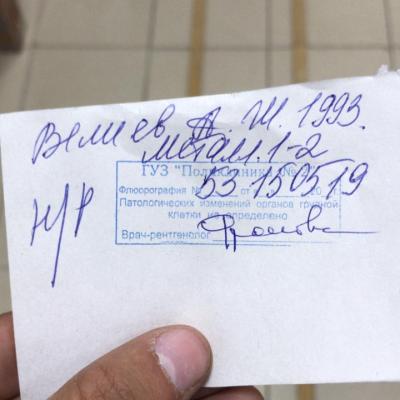 Велиев А. Ж. 1993.
метал. 1-2
ГУЗ "Поликлиника № 2"
Флюорография № 53 от 150519
Патологических изменений органов грудной
клетки не определено
Н/Р
Врач-рентгенолог Фролова